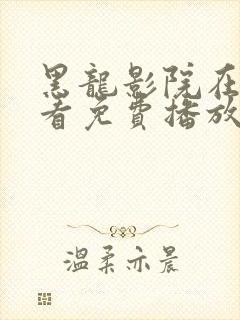 黑龍影院在
看免費播放
溫柔亦晨